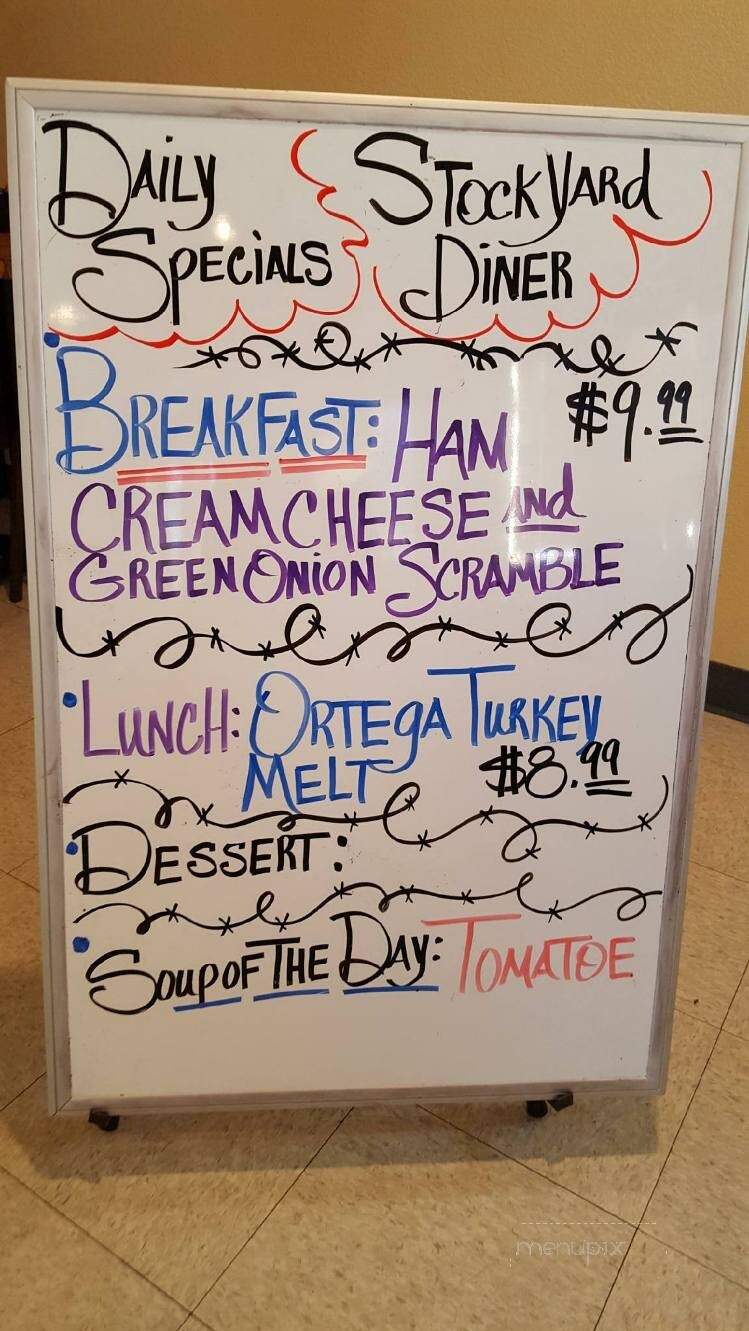 Daily
Specials
StockYard
Diner
Breakfast: Ham $9.99
Cream Cheese and
Green Onion Scramble
Lunch: Ortega Turkey
Melt $8.99
Dessert:
Soup of The Day: Tomatoe
menupix